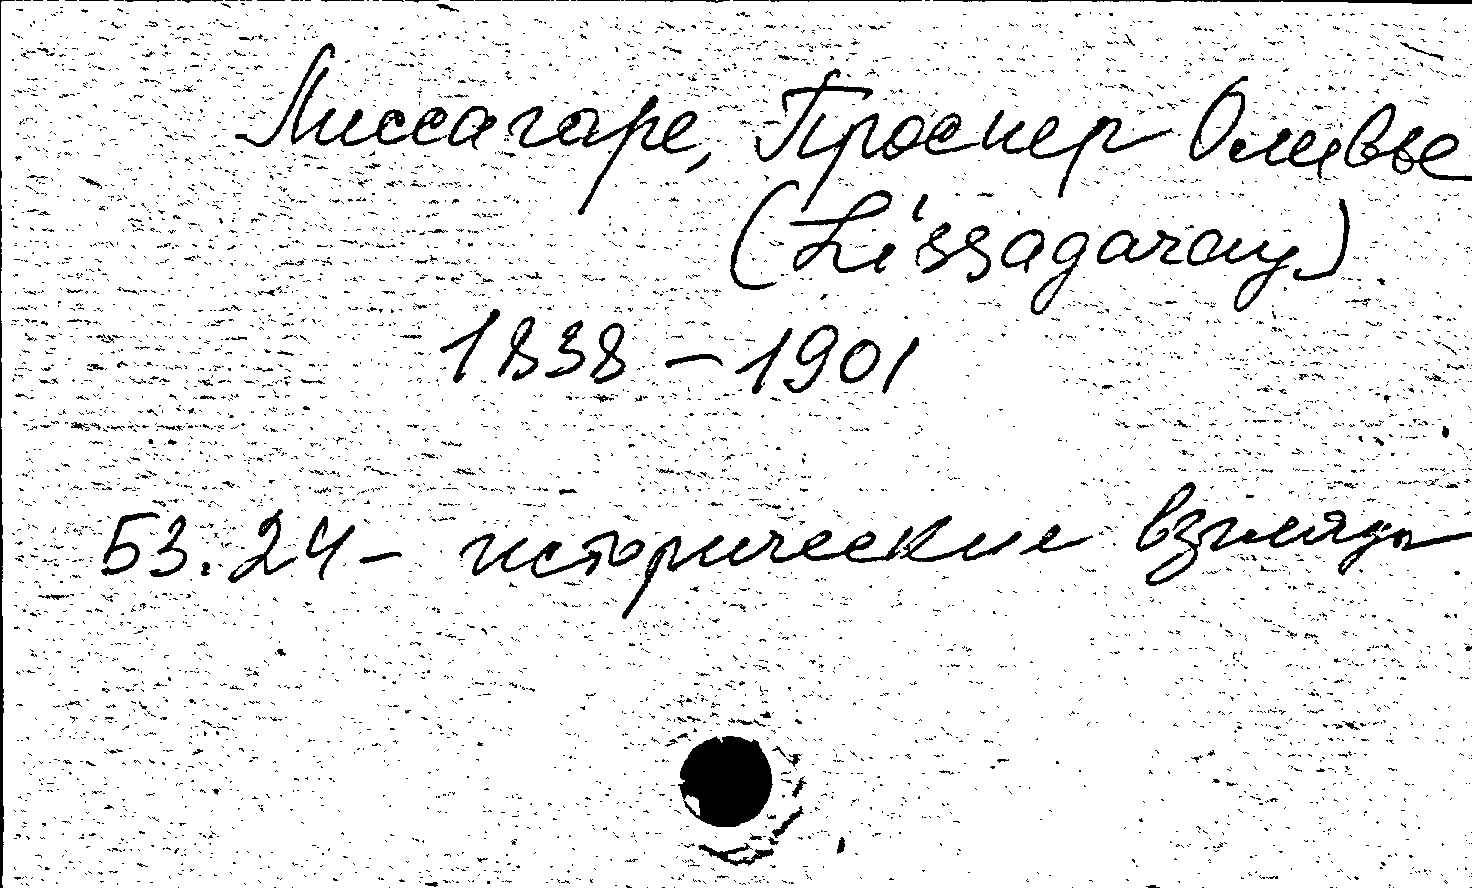 Лиссагаре, Проспер Оливье
(Lissagaray)
1838 – 1901
53.24 – исторические взгляды